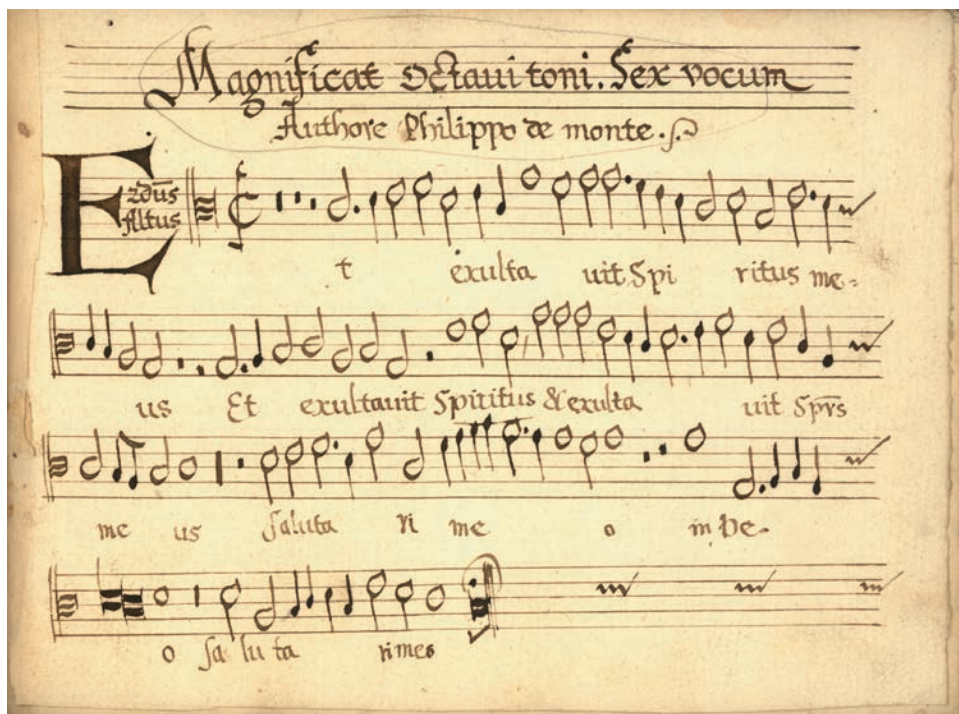 Magnificat Octaui toni. Sex vocum
Authore Philippo de monte.
E
2dūs
Altus
t exulta uit Spi ritus me-
us Et exultauit Spiritus & exulta uit Sp̄rs
me us Saluta ri me o in De-
o sa lu ta ri meo